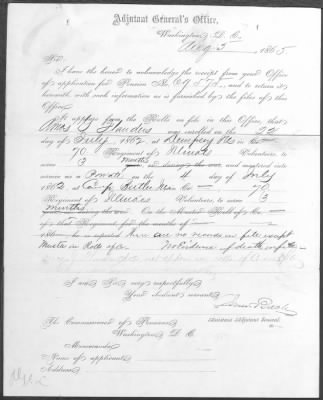 Adjutant General's Office,
Washington, D. C.
Aug 5, 1865
Sir:
I have the honor to acknowledge the receipt from your Office
of application for Pension No. 69975, and to return it
herewith, with such information as is furnished by the files of this
Office.
It appears from the Rolls on file in this Office, that
Amos J. Flanders was enrolled on the 22
day of 1862 at in Co.
70 Regiment of Illinois Volunteers, to
serve 3 months, and mustered into
service as a Private on the 4 day of July
1862 at Camp Butler in Co. 70
Regiment of Illinois Volunteers, to serve 3
months. On the Muster Roll of Co.
of that Regiment, for the months of
186 he is reported There are no records on file except
Muster in Roll of Co. No evidence of death on file
I am, Sir, very respectfully,
Your obedient servant,
Assistant Adjutant General.
The Commissioner of Pensions,
Washington, D. C.
Memoranda:
Name of applicant,
Address,